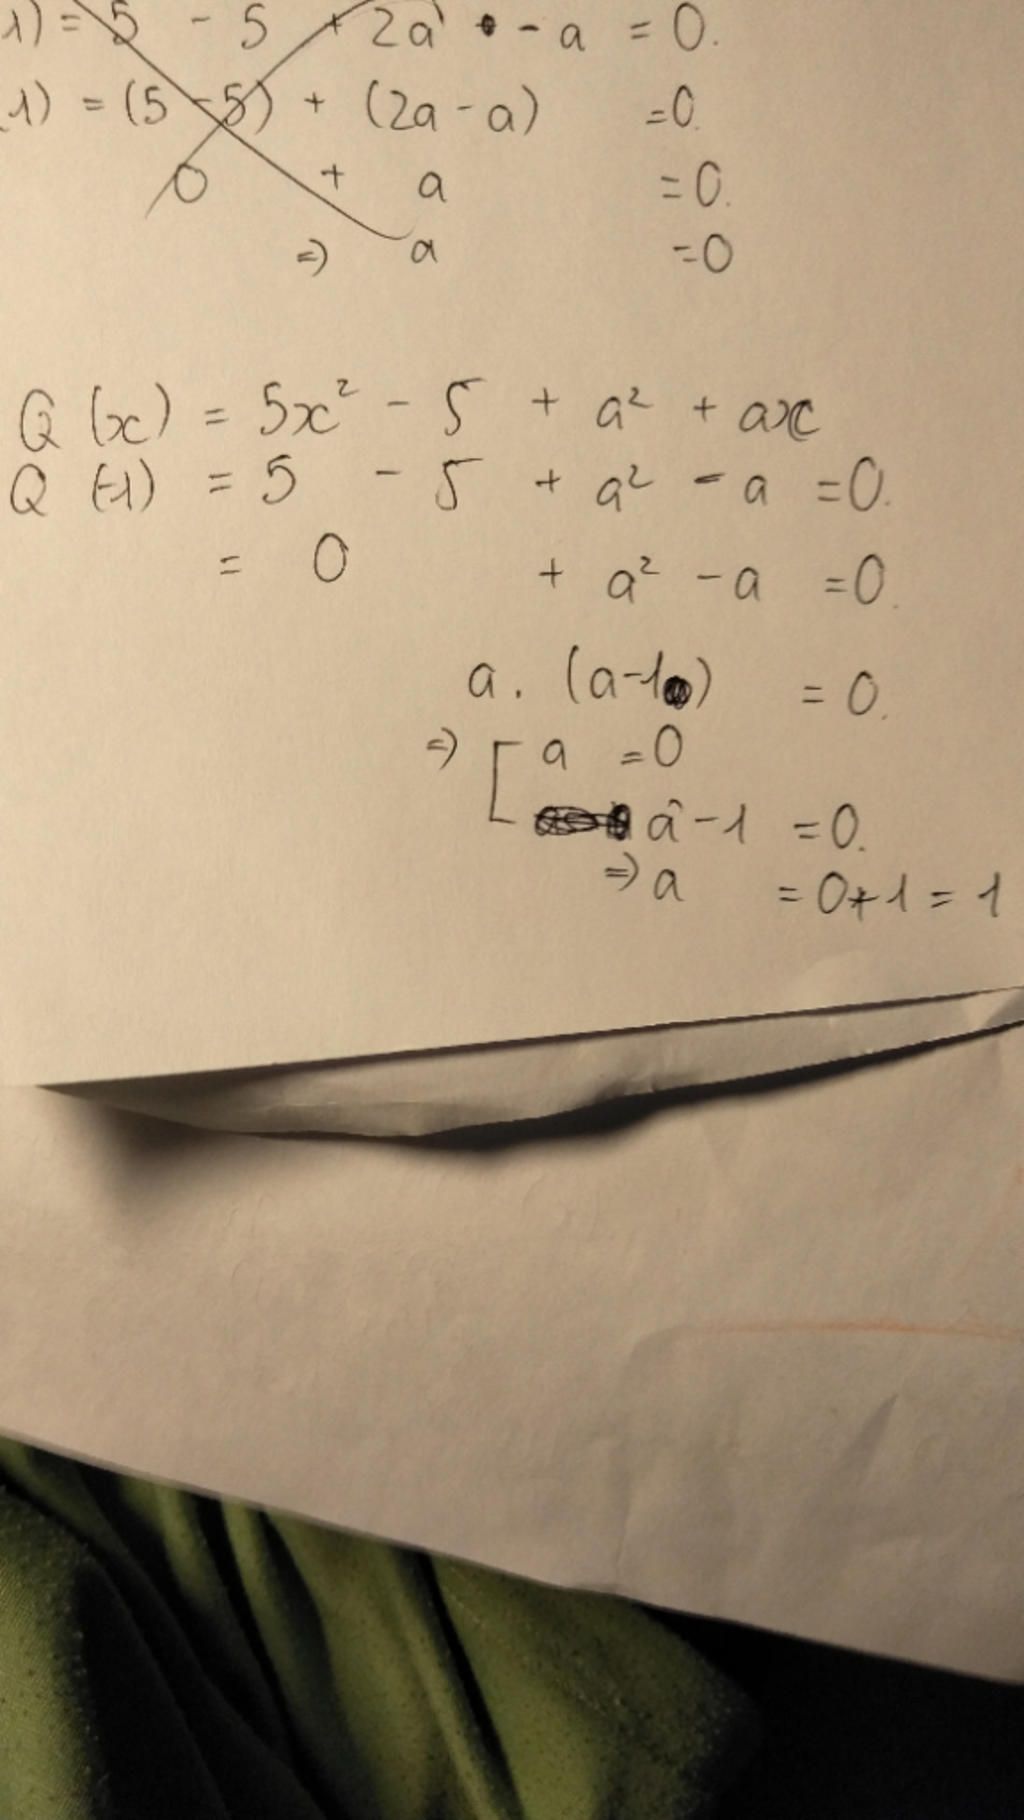 1) = 5 - 5 + 2a - a = 0.
1) = (5 - 5) + (2a - a) = 0.
0 + a = 0.
=) a = 0
Q (x) = 5x² - 5 + a² + ax
Q (-1) = 5 - 5 + a² - a = 0.
= 0 + a² - a = 0.
a. (a-1) = 0.
=) [ a = 0
a - 1 = 0.
=) a = 0+1 = 1